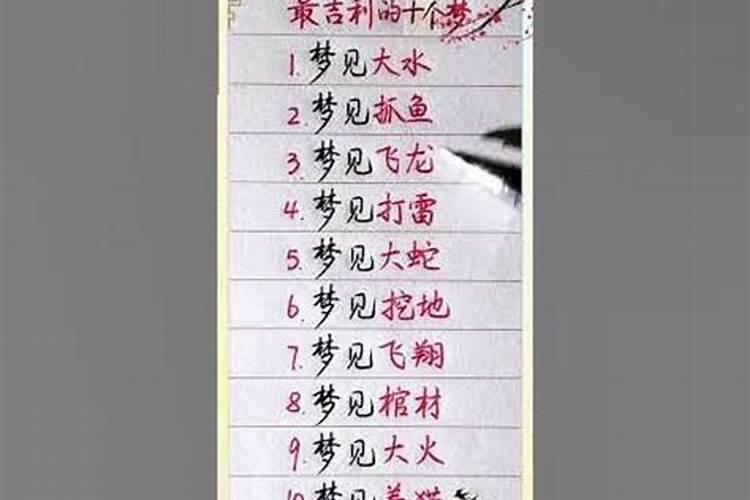 最吉利的十个梦
1.梦见大水
2.梦见抓鱼
3.梦见飞龙
4.梦见打雷
5.梦见大蛇
6.梦见挖地
7.梦见飞翔
8.梦见棺材
9.梦见大火
10.梦见养猫